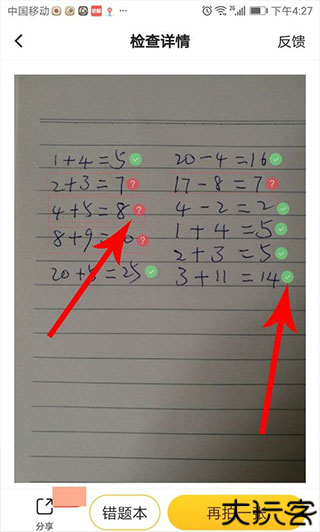 中国移动
下午4:27
检查详情
反馈
1+4=5
20-4=16
2+3=7
17-8=7
4+5=8
4-2=2
8+9=
1+4=5
2+3=5
20+5=25
3+11=14
分享
错题本
再拍一张
大玩客